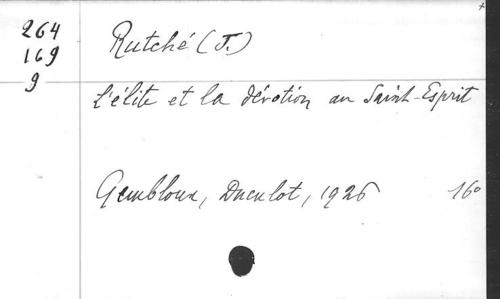 264
169
9
Rutché (J.)
L'élite et la dévotion au Saint-Esprit
Gembloux, Duculot, 1926 16°